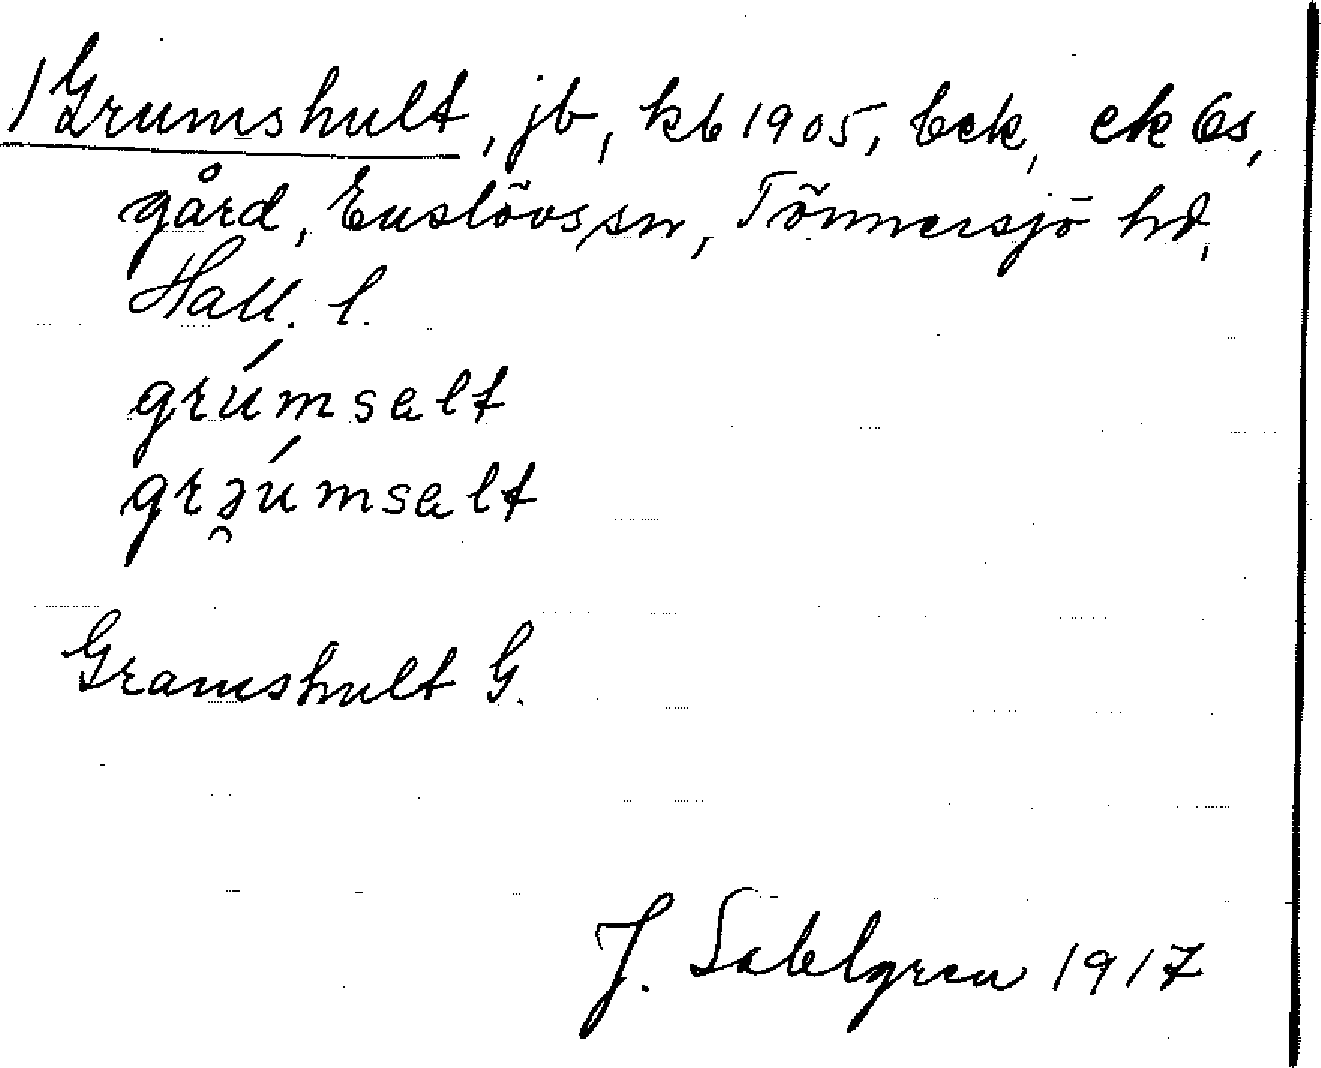 /Grumshult, jb, kb 1905, bek, ek bs,
gård, Enslövs sn, Tönnersjö hd,
Hall. l.
grúmsalt
grə̯úmsalt
Gramshult G.
J. Sahlgren 1917